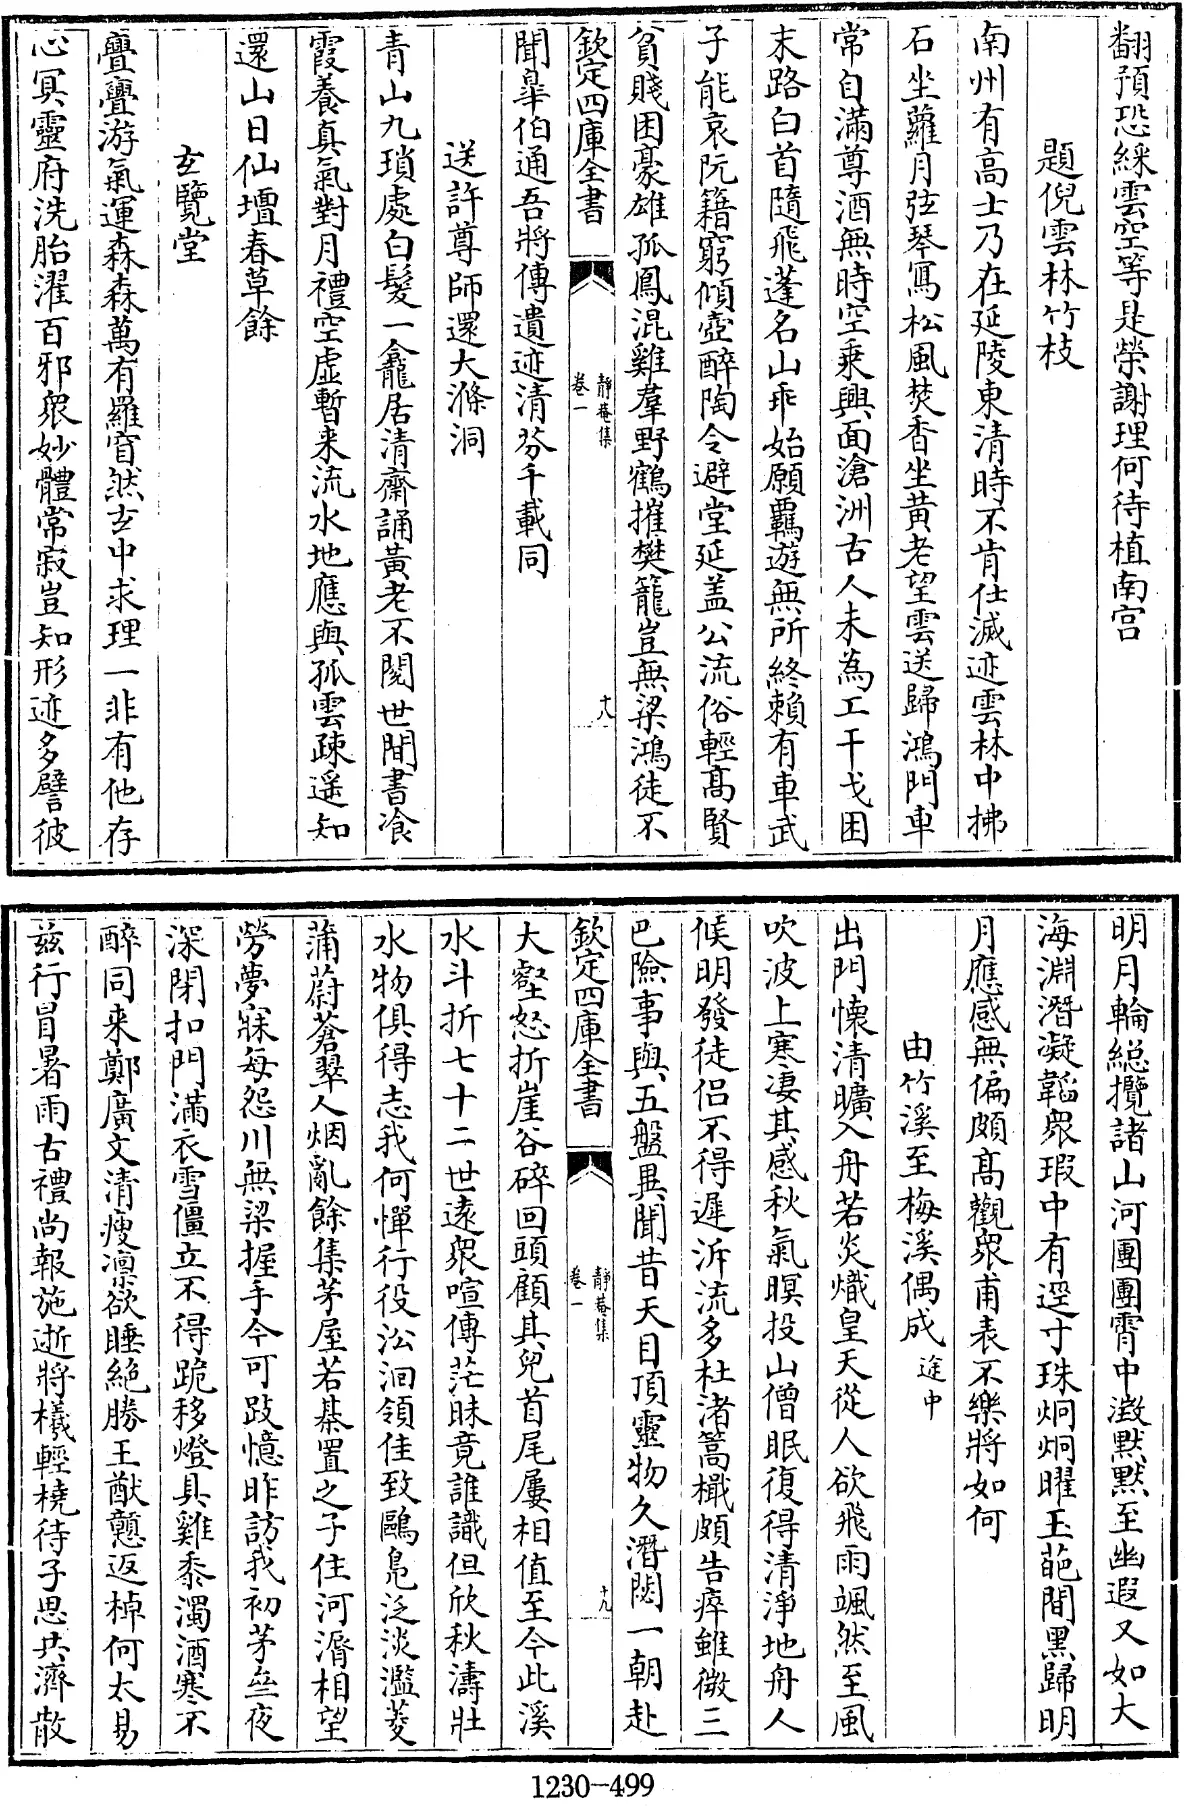 翻預恐綵雲空等是榮謝理何待植南宫
題倪雲林竹枝
南州有高士乃在延陵東清時不肯仕滅迹雲林中拂
石坐蘿月弦琴寫松風焚香坐黄老望雲送歸鴻門車
常自滿尊酒無時空乗興面滄洲古人未為工干戈困
末路白首隨飛蓬名山乖始願覊遊無所終賴有車武
子能哀阮籍窮傾壺醉陶令避堂延盖公流俗輕髙賢
貧賤困豪雄孤鳳混雞羣野鶴摧樊籠豈無梁鴻徒不
欽定四庫全書
靜菴集
卷一
十八
聞臯伯通吾將傳遺迹清芬千載同
送許尊師還大滌洞
青山九瑣處白髮一龕居清齋誦黃老不閱世間書飡
霞養真氣對月禮空虚暫来流水地應與孤雲疎遥知
還山日仙壇春草餘
玄覽堂
亹亹游氣運森森萬有羅窅然玄中求理一非有他存
心冥靈府洗胎濯百邪衆妙體常寂豈知形迹多譬彼
明月輪総攬諸山河團團霄中澂默默至幽遐又如大
海淵潛凝韜衆瑕中有逕寸珠炯炯曜玉葩間黑歸明
月應感無偏頗髙觀衆甫表不樂將如何
由竹溪至梅溪偶成途中
出門懐清曠入舟若炎熾皇天從人欲飛雨颯然至風
吹波上寒凄其感秋氣暝投山僧眠復得清淨地舟人
候明發徒侣不得遲泝流多杜渚篙檝頗告瘁雖微三
巴險事與五盤異聞昔天目頂靈物久潛閟一朝赴
欽定四庫全書
靜菴集
卷一
十九
大壑怒折崖谷碎回頭顧其兒首尾屢相值至今此溪
水斗折七十二世逺衆喧傳茫昧竟誰識但欣秋濤壯
水物俱得志我何憚行役沿洄領佳致鷗鳬泛淡灔菱
蒲蔚蒼翠人烟亂餘集茅屋若棊置之子住河湄相望
勞夢寐每怨川無梁握手今可跂憶昨訪我初茅齋夜
深閉扣門滿衣雪僵立不得跪移燈具雞黍濁酒寒不
醉同来鄭廣文清瘦凛欲睡絶勝王猷戇返棹何太易
兹行冒暑雨古禮尚報施逝將檥輕橈待子思共濟散
1230-499